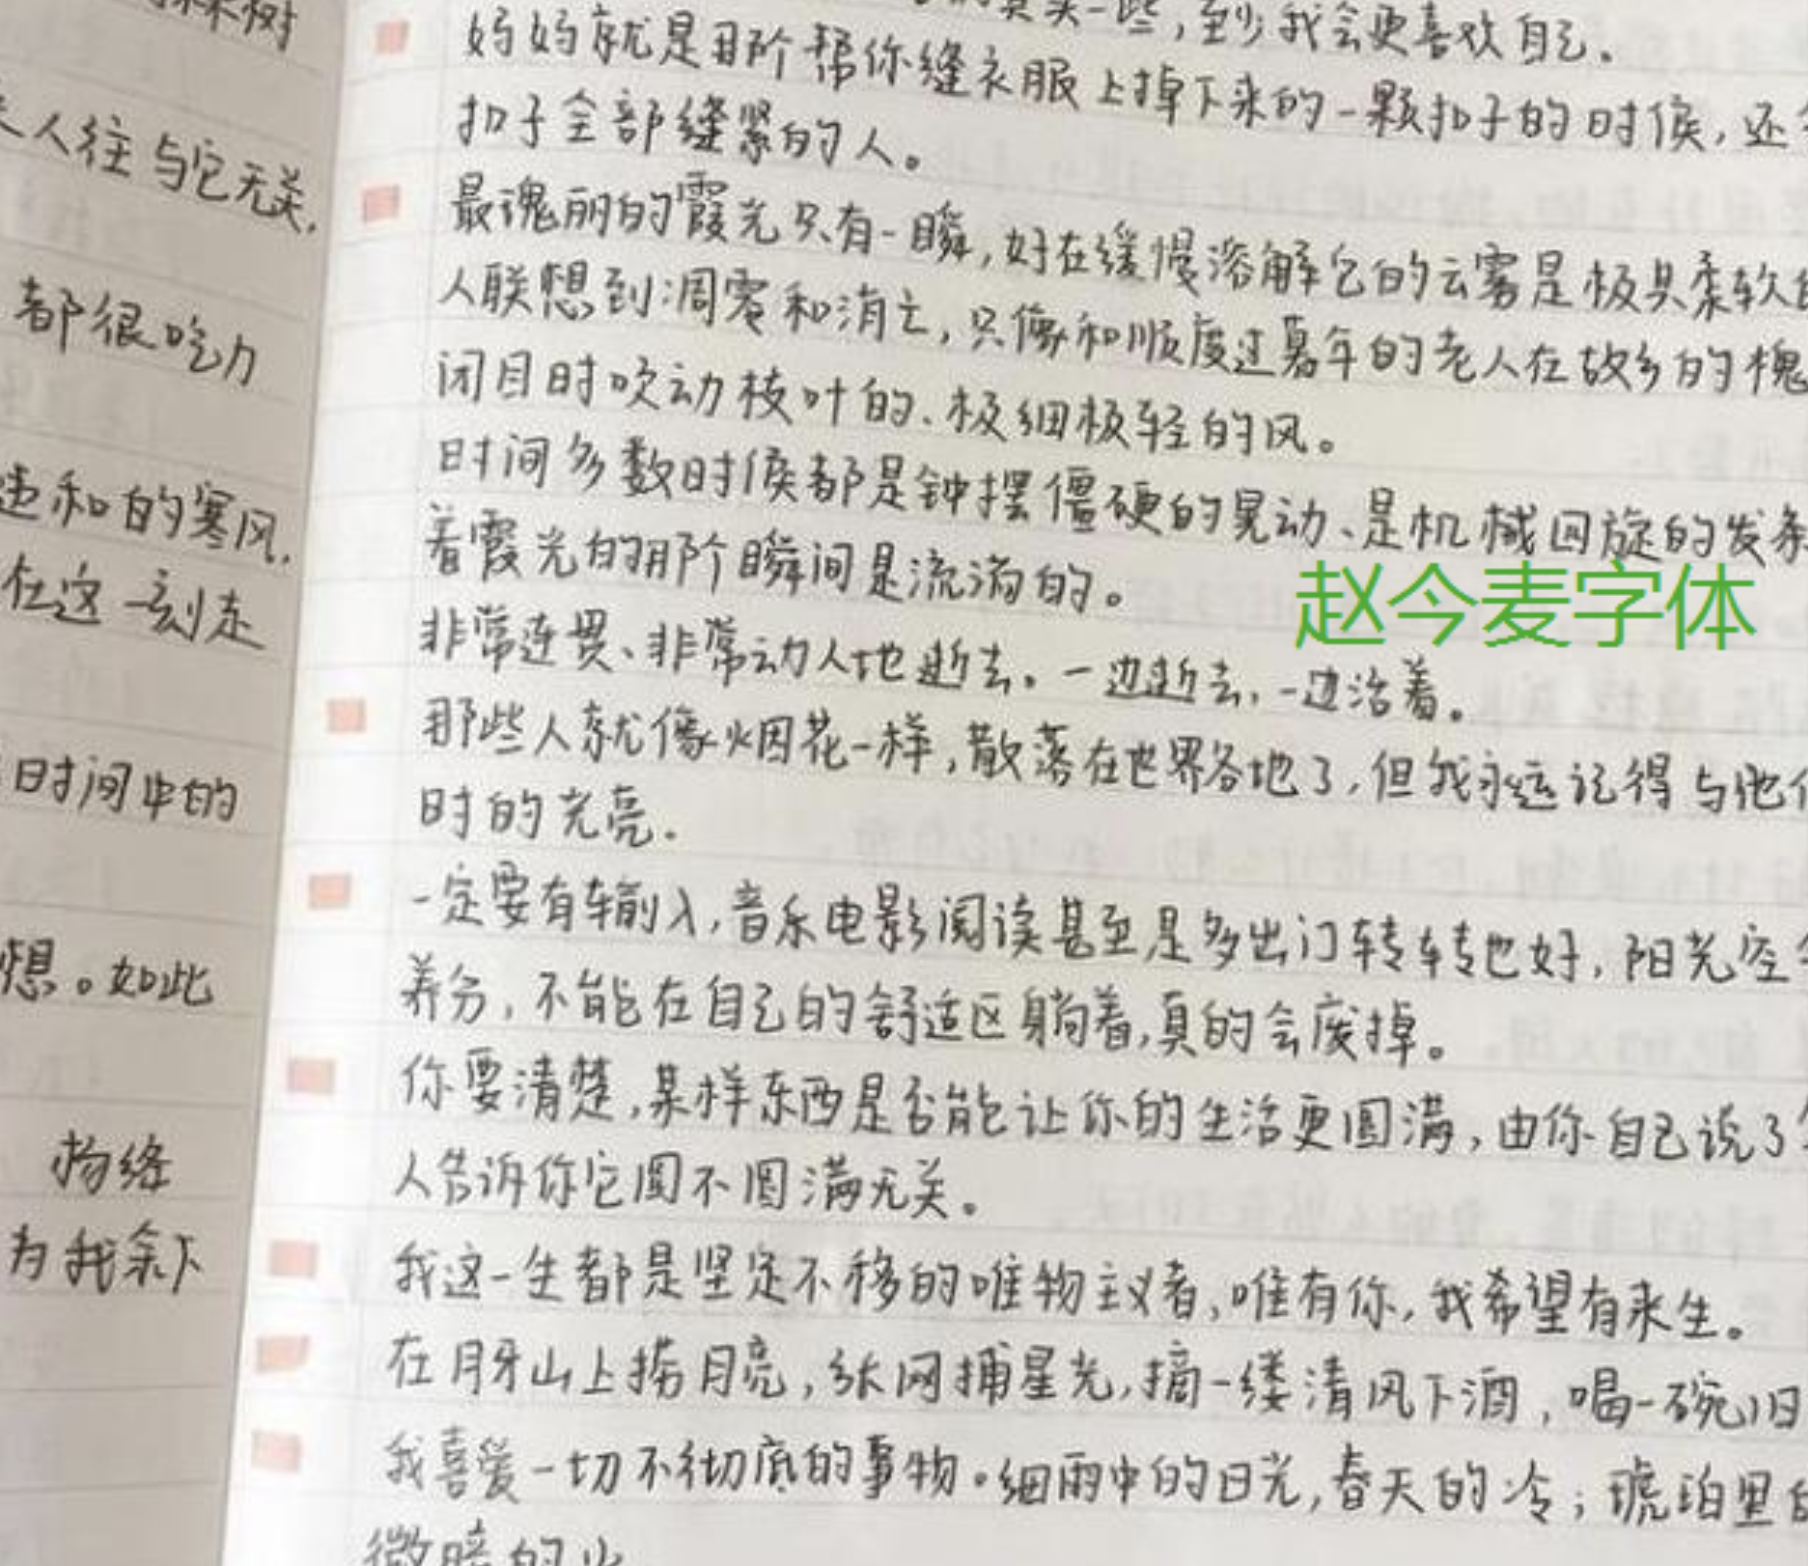 树
人往与它无关,
都很吃力
和的寒风,
在这一刻走
时间中的
想。如此
为我余下
一些,至少我会更喜欢自己。
妈妈就是那个帮你缝衣服上掉下来的一颗扣子的时候,还
扣子全部缝紧的人。
最瑰丽的霞光只有一瞬,好在缓慢溶解它的云雾是极其柔软的
人联想到凋零和消亡,只像和顺度过暮年的老人在故乡的槐
闭目时吹动枝叶的、极细极轻的风。
时间多数时候都是钟摆僵硬的晃动、是机械回旋的发条
着霞光的那个瞬间是流淌的。
赵今麦字体
非常连贯、非常动人地逝去。一边逝去,一边活着。
那些人就像烟花一样,散落在世界各地了,但我永远记得与他们
时的光亮.
一定要有输入,音乐电影阅读甚至是多出门转转也好,阳光空
养分,不能在自己的舒适区躺着,真的会废掉。
你要清楚,某样东西是否能让你的生活更圆满,由你自己说了
人告诉你它圆不圆满无关。
我这一生都是坚定不移的唯物主义者,唯有你,我希望有来生。
在月牙山上捞月亮,张网捕星光,摘一缕清风下酒,喝一碗旧
我喜爱一切不彻底的事物。细雨中的日光,春天的冷;琥珀里的
微暗的火